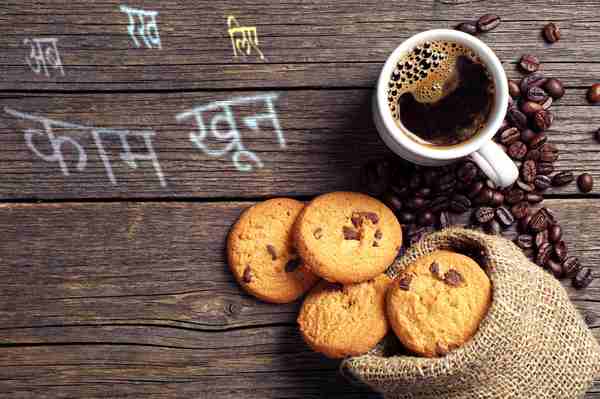 अब रख लिए
काम खून